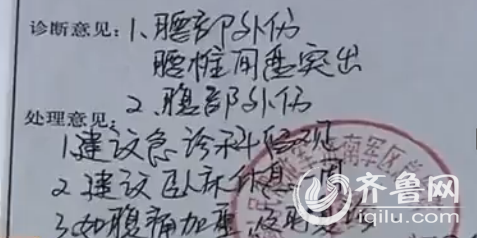 诊断意见：1、腰部外伤
腰椎间盘突出
2、腹部外伤
处理意见：
1.建议急诊科留观
2.建议卧床休息一周
3.如腹痛加重
南军区
齐鲁网
iqilu.com